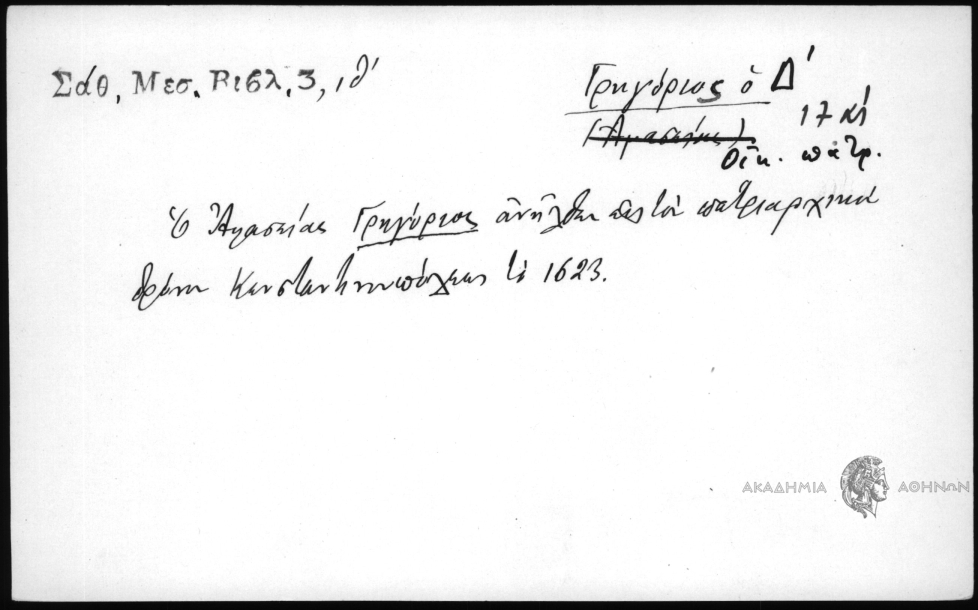 Σάθ, Μεσ. Βιβλ, 3, ιθ'
Γρηγόριος ὁ Δ'
17 αἰ
(Ἀμασείας)
Οἰκ. πατρ.
Ὁ Ἀμασείας Γρηγόριος ἀνῆλθεν εἰς τὸν πατριαρχικὸν
θρόνον Κωνσταντινουπόλεως τὸ 1623.
ΑΚΑΔΗΜΙΑ ΑΘΗΝΩΝ